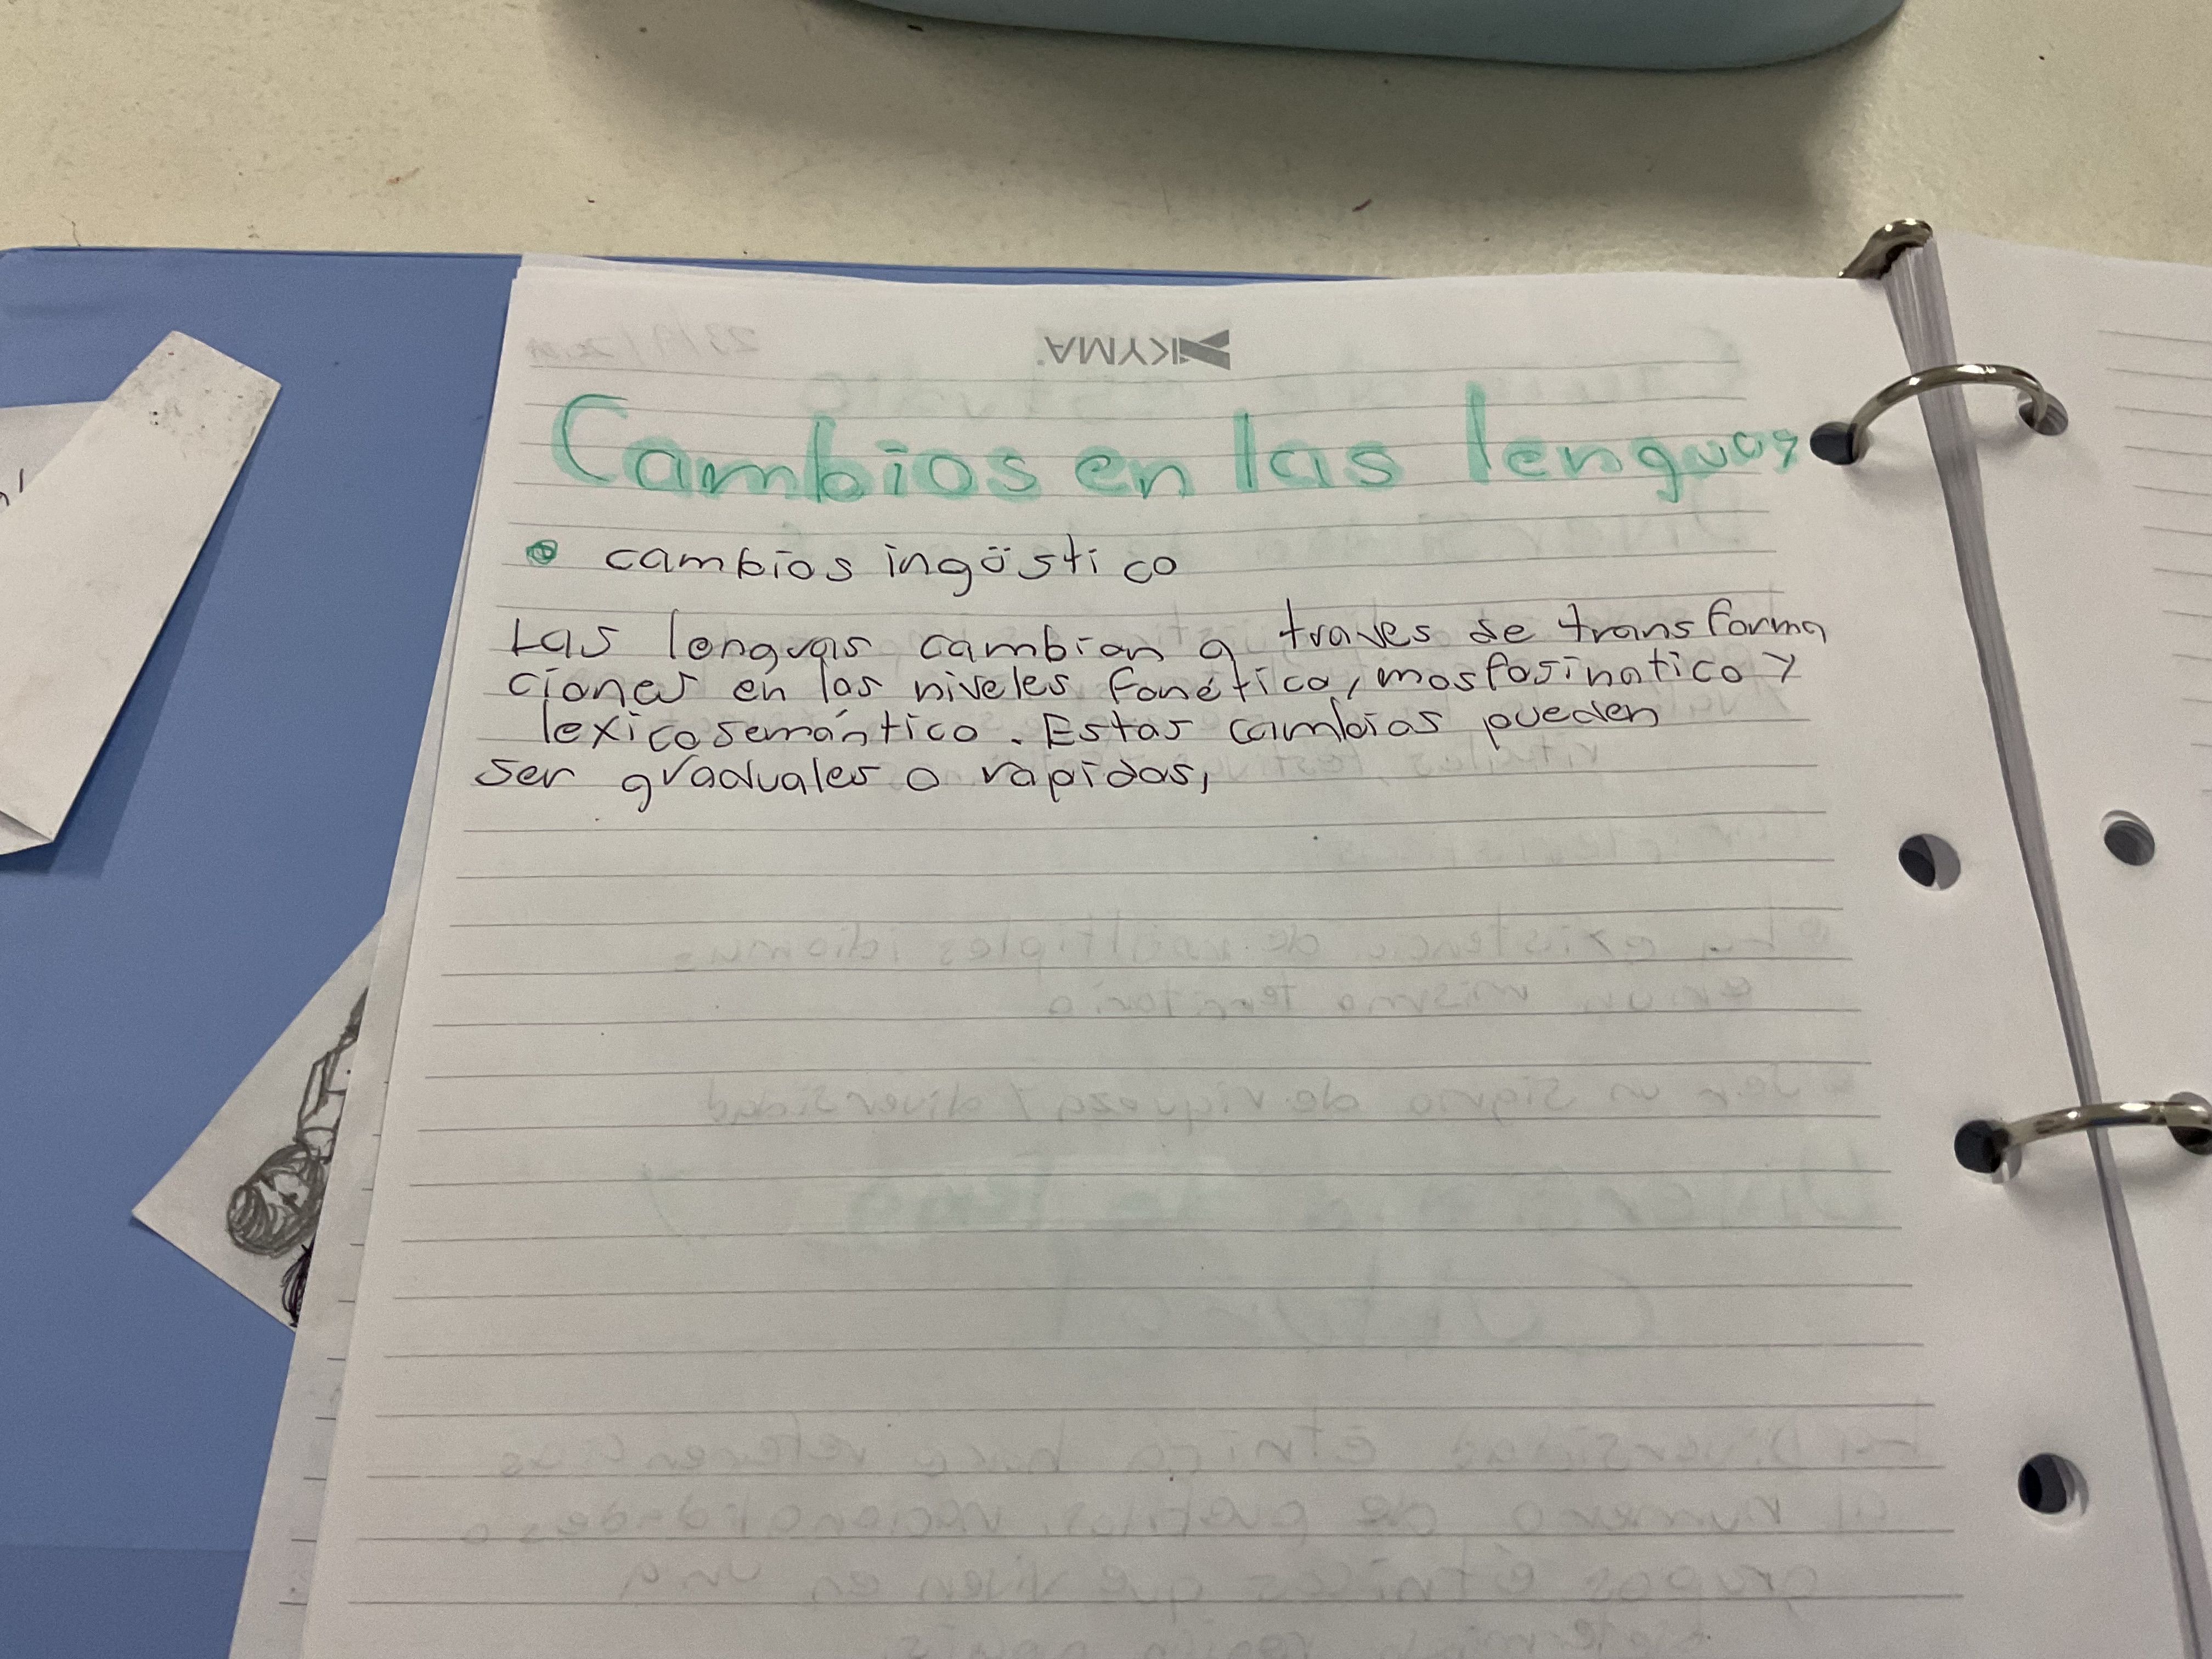 KYMA
Cambios en las lenguas
cambios ingüstico
Las lenguas cambian a traves de transforma
ciones en los niveles fonético, mosfosinatico y
lexicosemántico. Estas cambios pueden
ser graduales o rapidos,